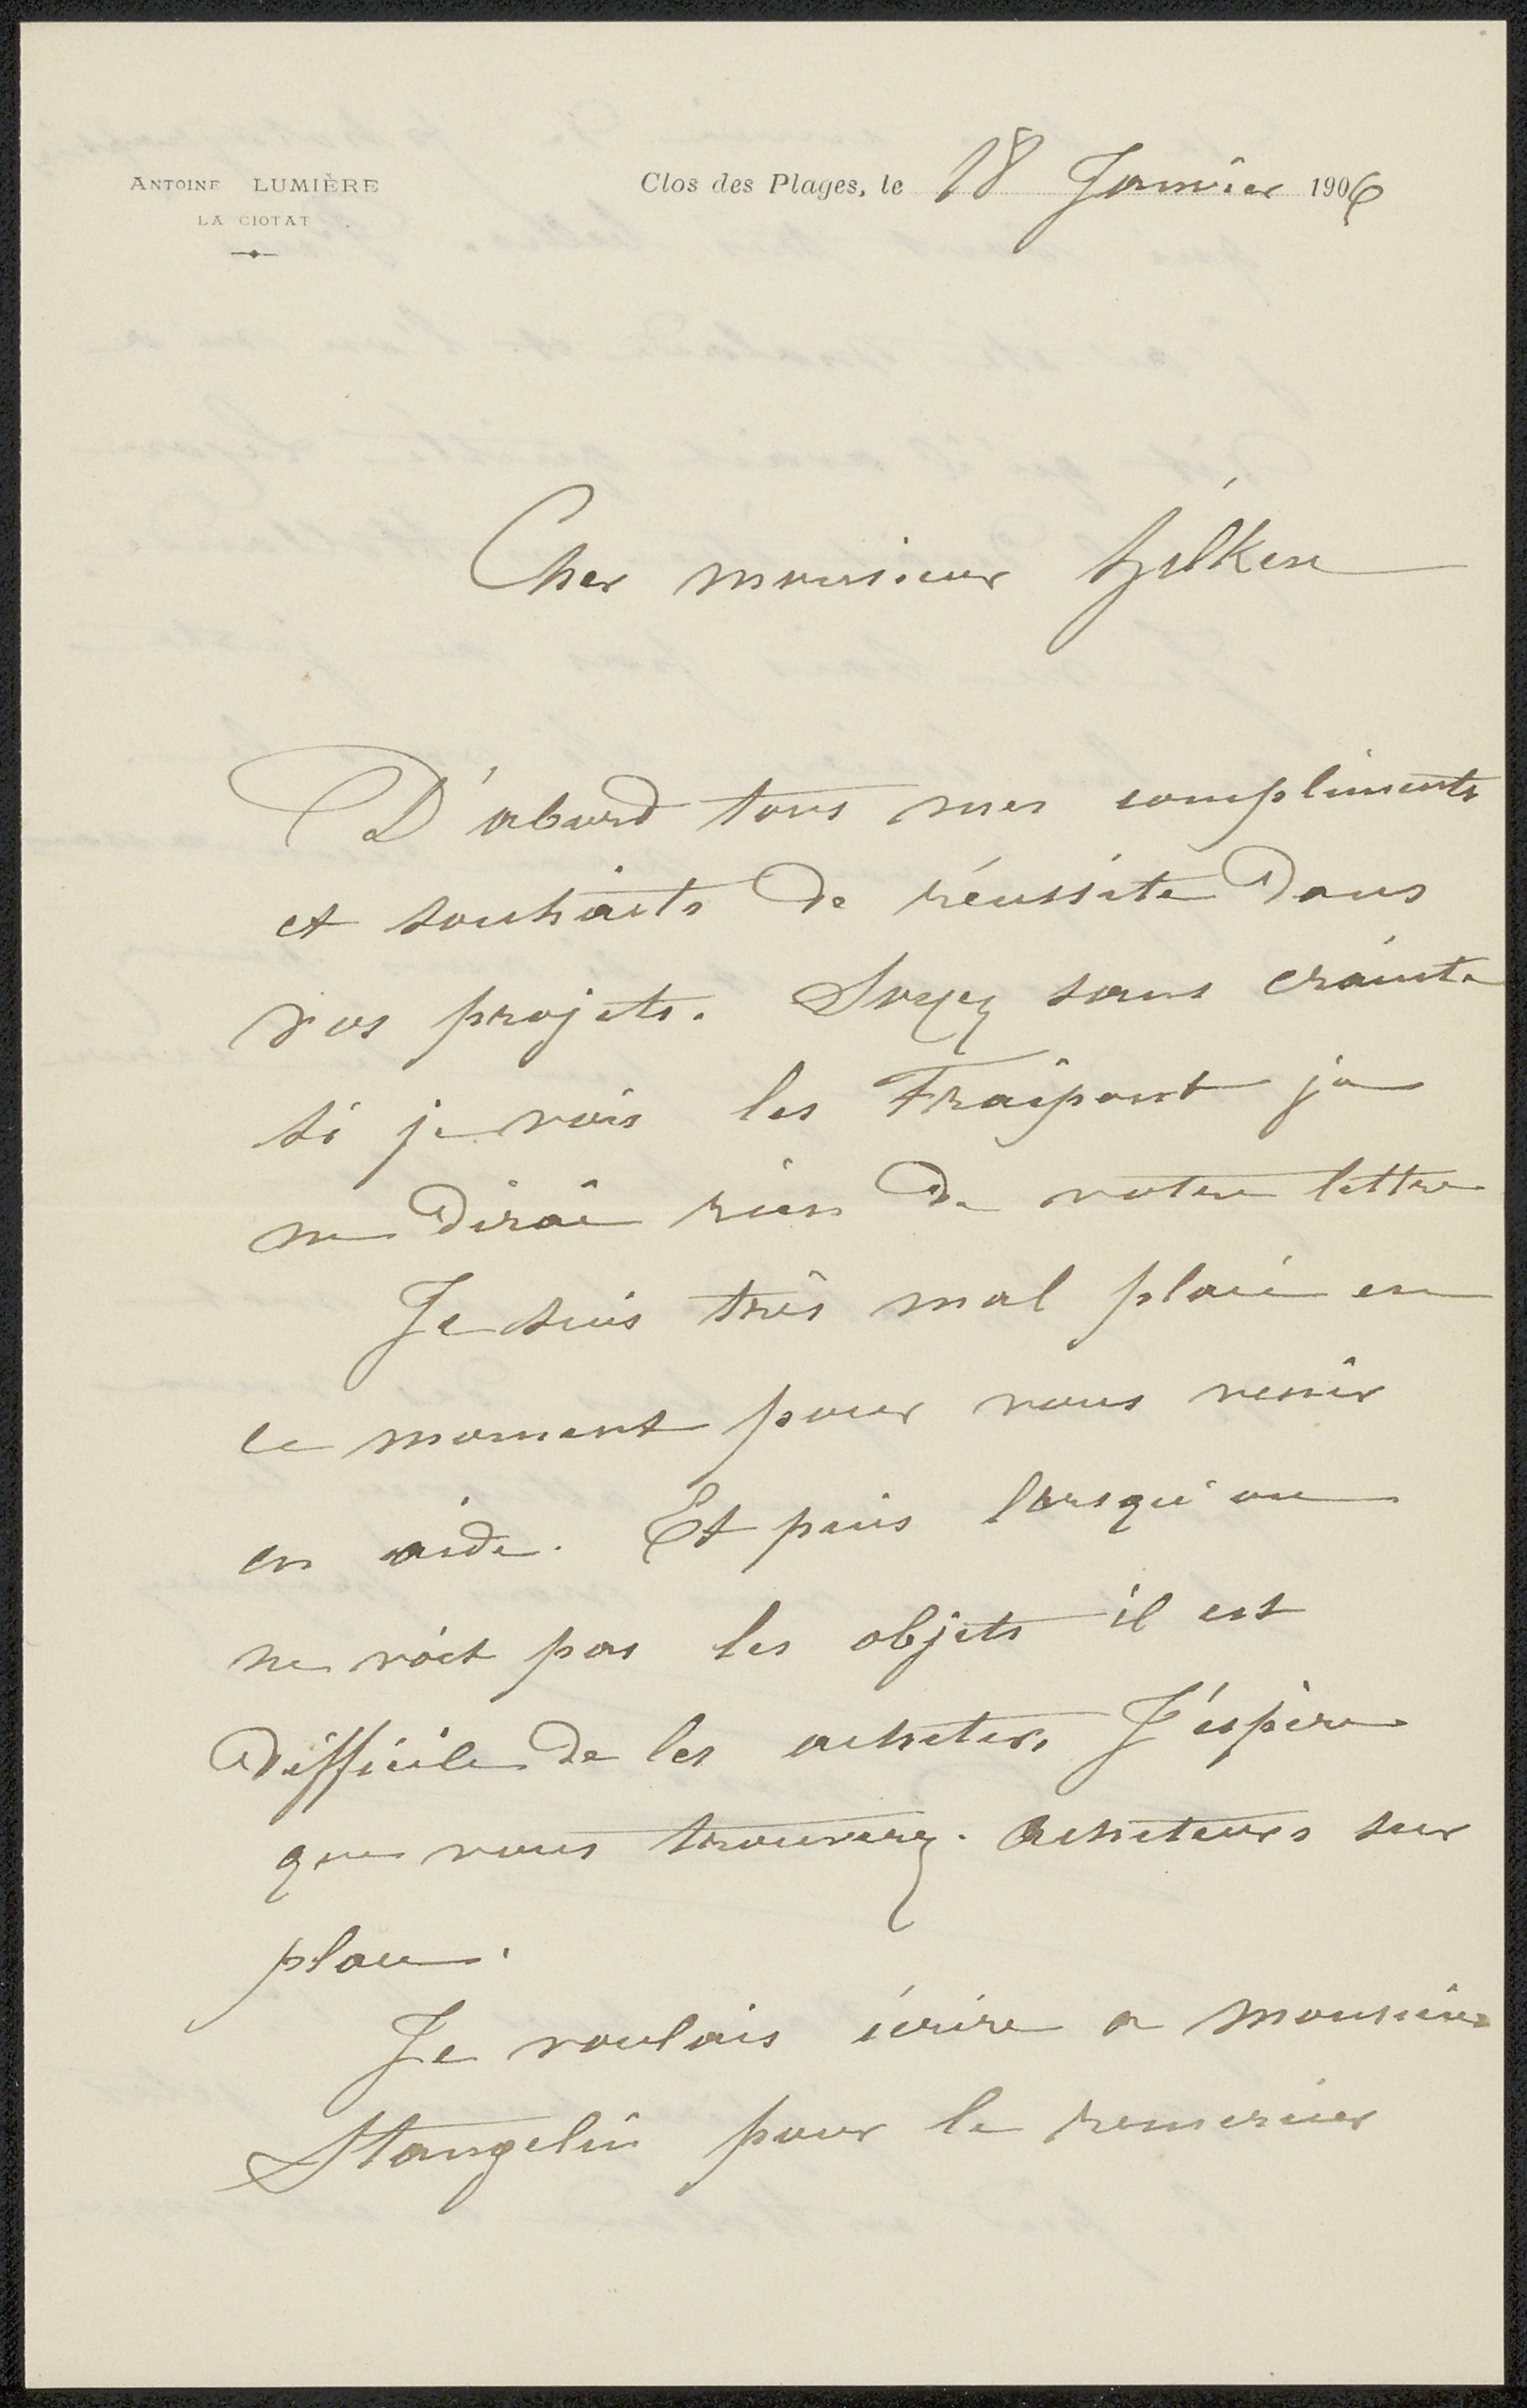 ANTOINE LUMIÈRE
LA CIOTAT
Clos des Plages, le 18 Janvier 1906
Cher monsieur Zilken
D'abord tous mes compliments
et souhaits de réussite dans
vos projets. Soyez sans crainte
si je vois les Fraipont je
ne dirai rien de votre lettre
Je suis très mal placé en
ce moment pour vous venir
en aide. Et puis lorsqu'on
ne voit pas les objets il est
difficile de les acheter. J'éspère
que vous trouverez. acheteurs sur
place.
Je voulais écrire a monsieur
Stangelin pour le remercier